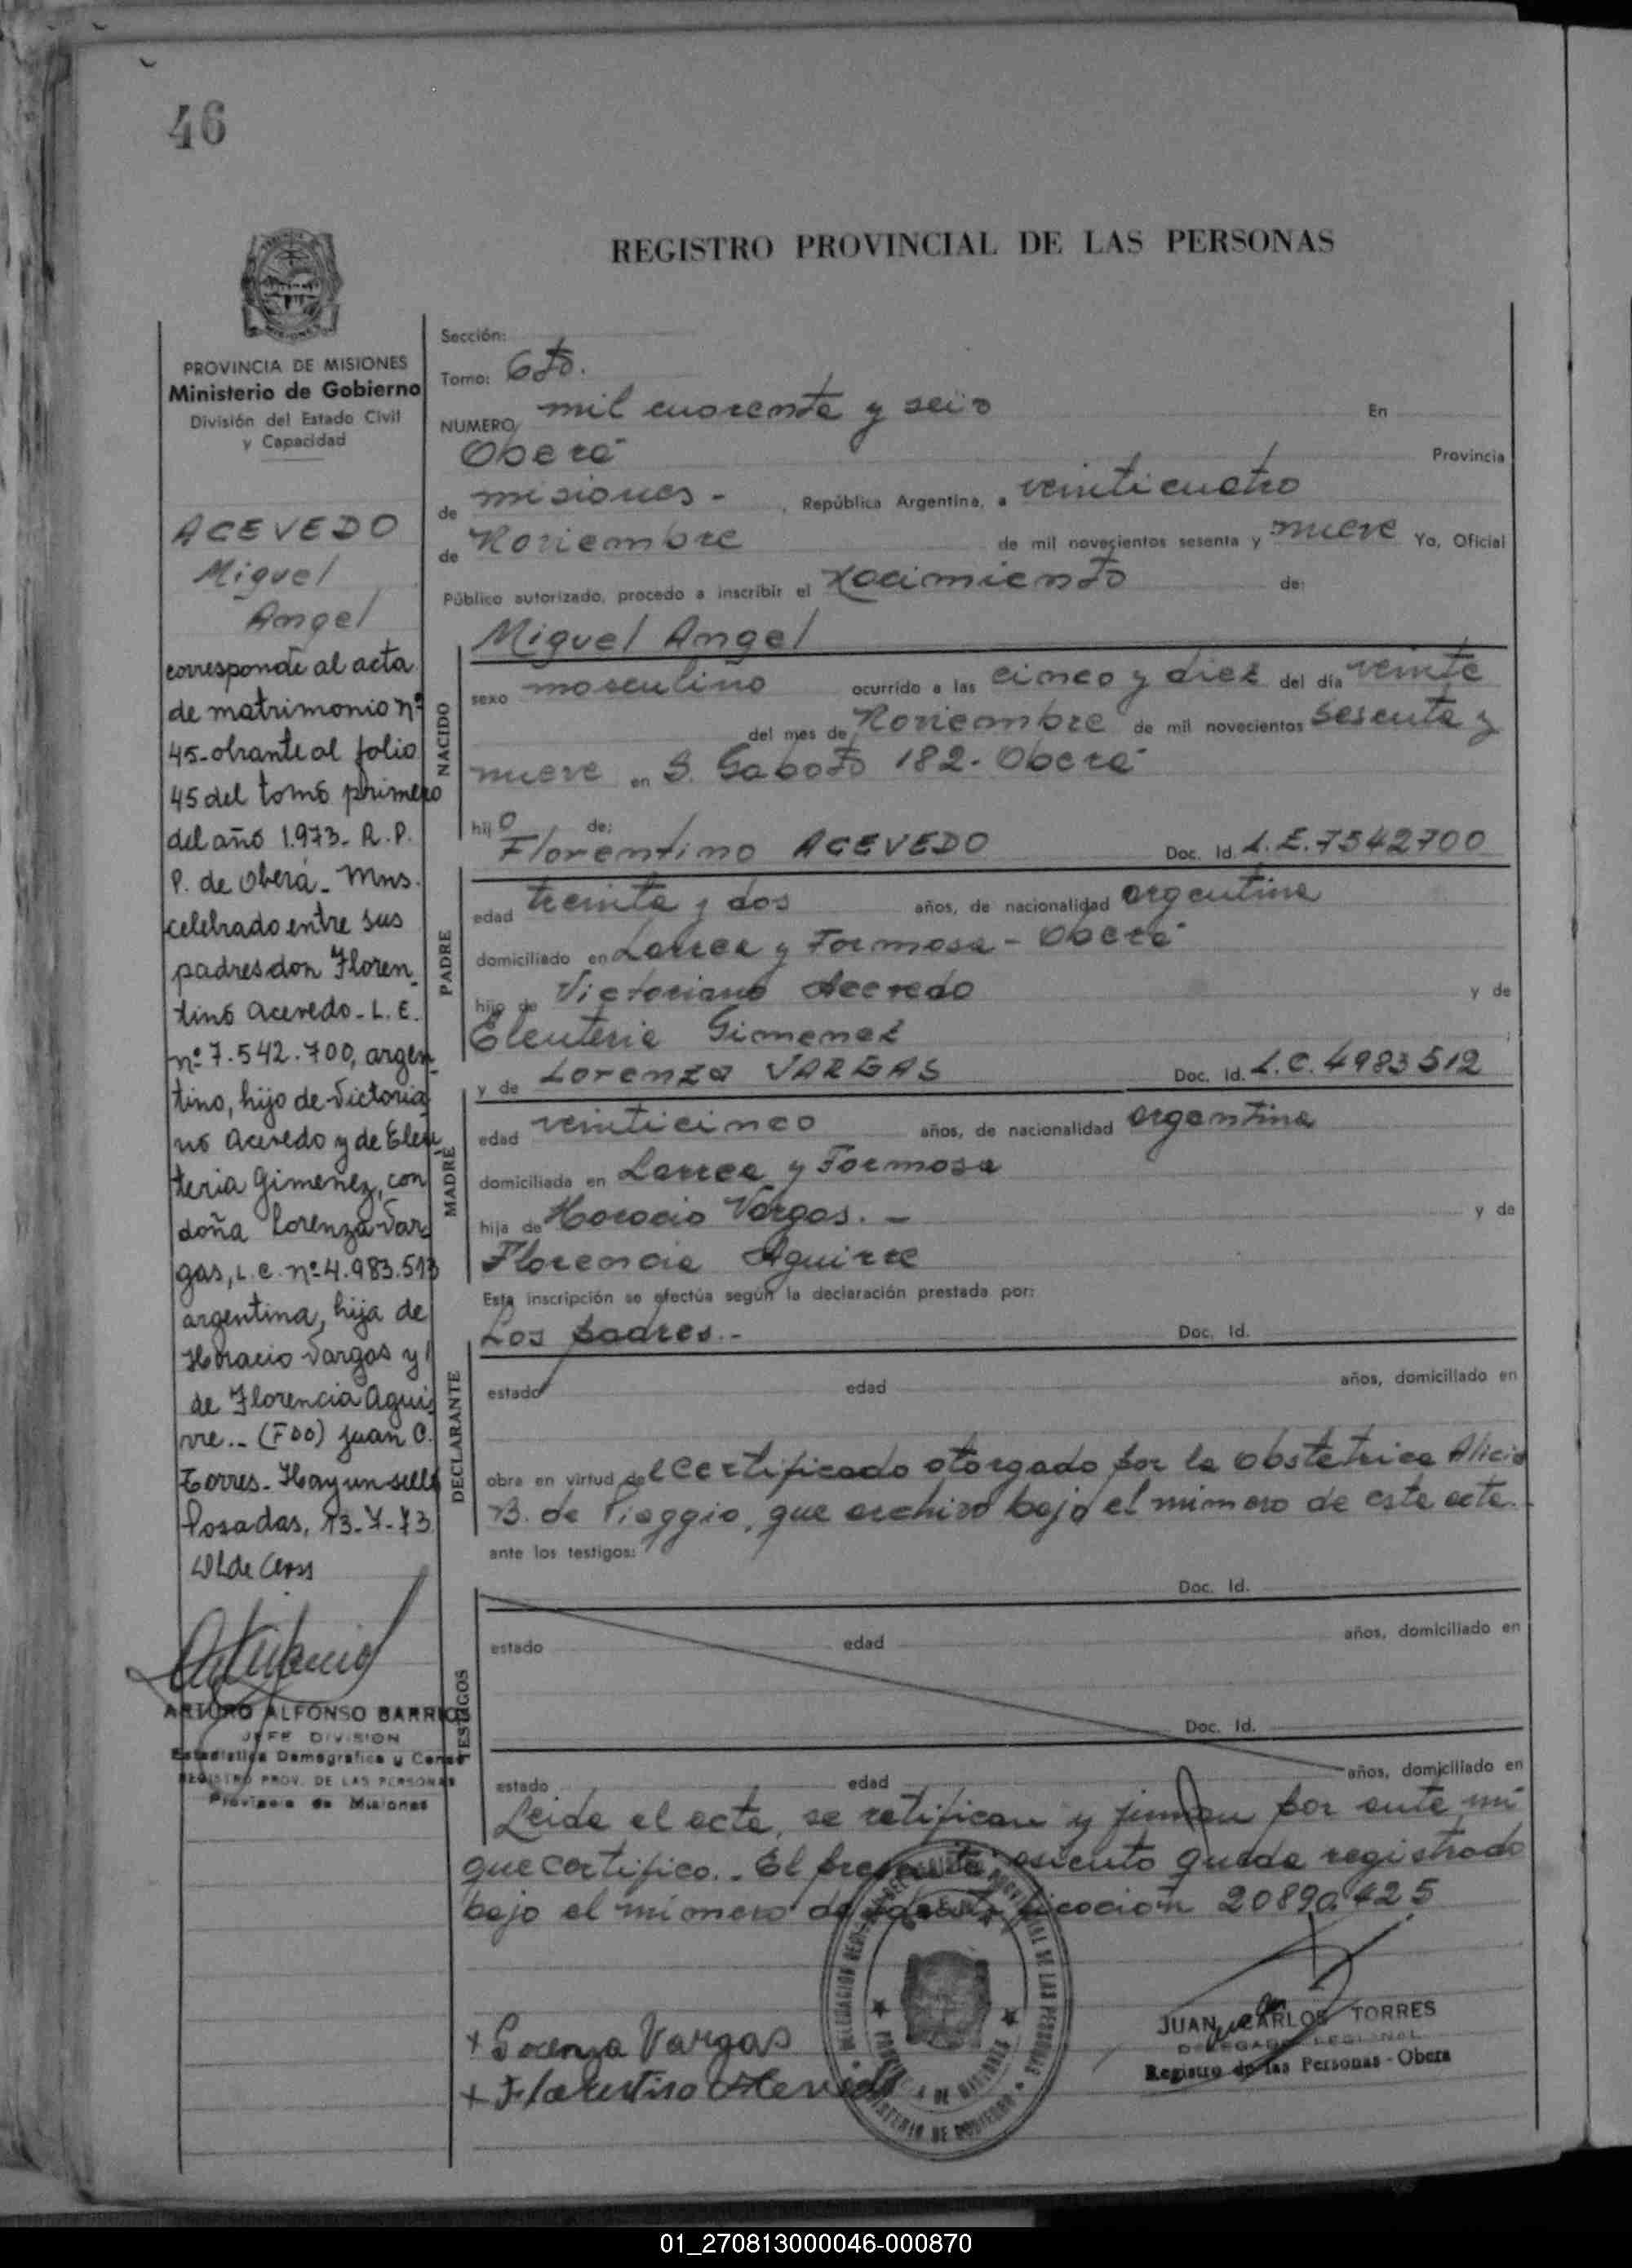 46
REGISTRO PROVINCIAL DE LAS PERSONAS
PROVINCIA DE MISIONES
Ministerio de Gobierno
División del Estado Civil
y Capacidad
ACEVEDO
Miguel
Angel
corresponde al acta
de matrimonio nº
45-obrante al folio
45 del tomo primero
del año 1.973- R. P.
P. de Oberá- Mns.
celebrado entre sus
padres don Floren
tino Acevedo- L. E.
nº 7.542.700, argen
tino, hijo de Victoria
no Acevedo y de Eleu
teria Gimenez, con
doña Lorenza Var
gas, L.C. nº 4.983.513
argentina, hija de
Horacio Vargas y
de Florencia Agui
rre.- (FDO) Juan C.
Torres- Hay un sello
Posadas, 13-7-73
ARTURO ALFONSO BARRIOS
JEFE DIVISION
Estadistica Demografica y Censo
REGISTRO PROV. DE LAS PERSONAS
Provincia de Misiones
Sección:
Tomo: 6to.
NUMERO mil cuarenta y seis En
Oberá Provincia
de misiones- , República Argentina, a veinticuatro
de Noviembre de mil novecientos sesenta y nueve Yo, Oficial
Público autorizado, procedo a inscribir el Nacimiento de:
Miguel Angel
NACIDO
sexo masculino ocurrido a las cinco y diez del día veinte
del mes de Noviembre de mil novecientos sesenta y
nueve en S. Gaboto 182- Oberá
hijo de:
Florentino ACEVEDO Doc. Id. L.E. 7542700
PADRE
edad treinta y dos años, de nacionalidad argentina
domiciliado en Larrea y Formosa - Oberá
hijo de Victoriano Acevedo y de
Eleuteria Gimenez
y de Lorenza VARGAS Doc. Id. L.C. 4983512
MADRE
edad veinticinco años, de nacionalidad argentina
domiciliada en Larrea y Formosa
hija de Horacio Vargas. - y de
Florencia Aguirre
Esta inscripción se efectúa según la declaración prestada por:
Los padres.- Doc. Id.
DECLARANTE
estado edad años, domiciliado en
obra en virtud del certificado otorgado por la obstetrica Alicia
B. de Piaggio, que archivo bajo el número de este acta.-
ante los testigos:
Doc. Id.
TESTIGOS
estado edad años, domiciliado en
Doc. Id.
estado edad años, domiciliado en
Leida el acta, se ratifican y firman por ante mi
que certifico.- El presente asiento queda registrado
bajo el número de identificación 20890425
+ Lorenza Vargas
+ Florentino Acevedo
DELEGACION REGISTRO PROVINCIAL DE LAS PERSONAS
PROVINCIA DE MISIONES
MINISTERIO DE GOBIERNO
JUAN CARLOS TORRES
DELEGADO REGIONAL
Registro de las Personas - Obera
01_270813000046-000870